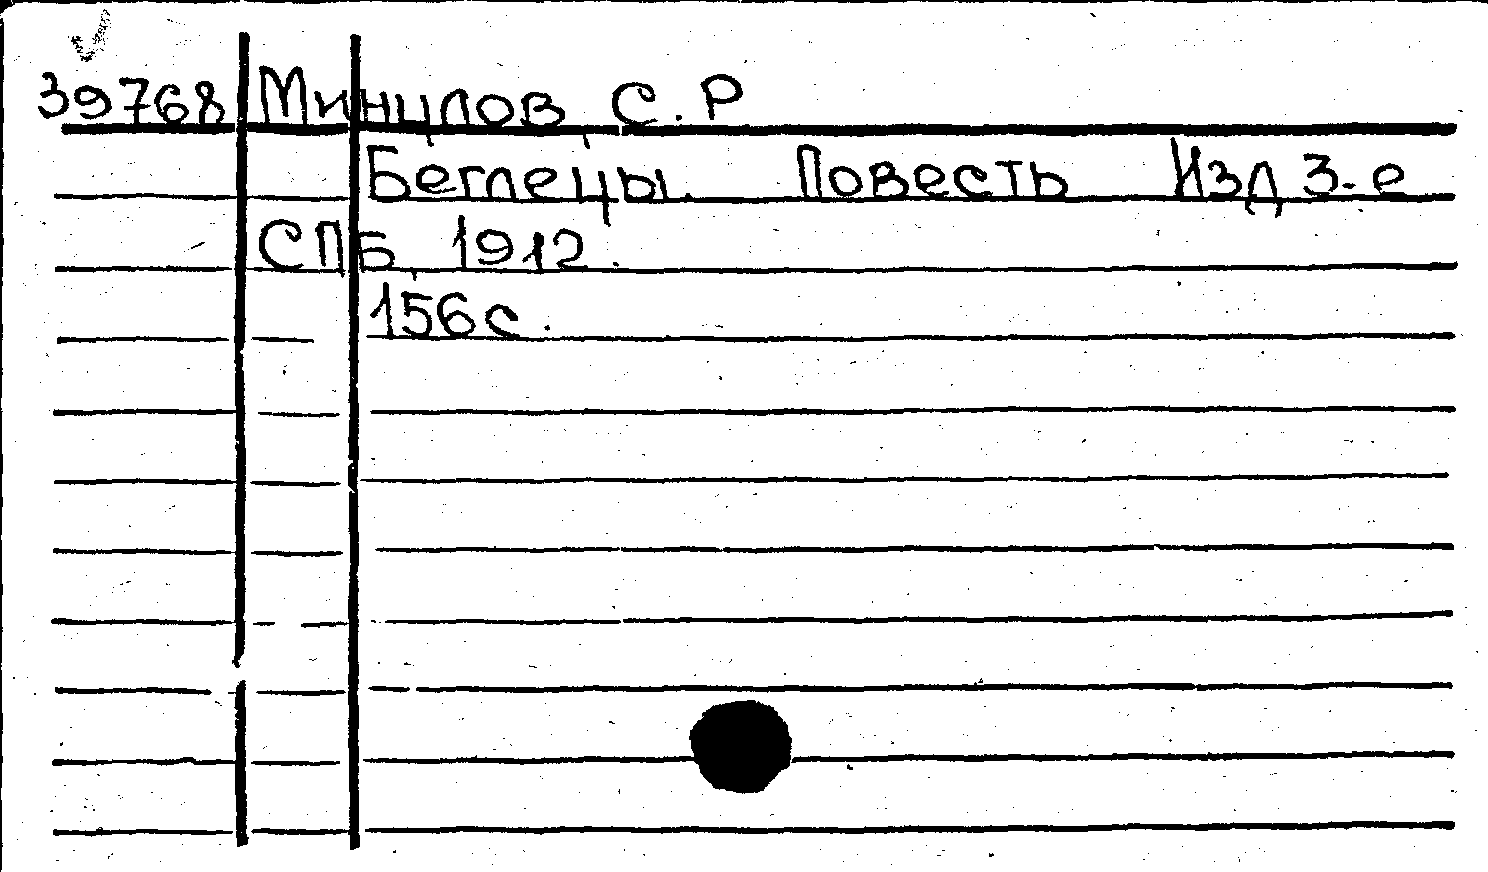 39768 Минцлов, С.Р
Беглецы. Повесть Изд 3-е
СПБ, 1912.
156с.